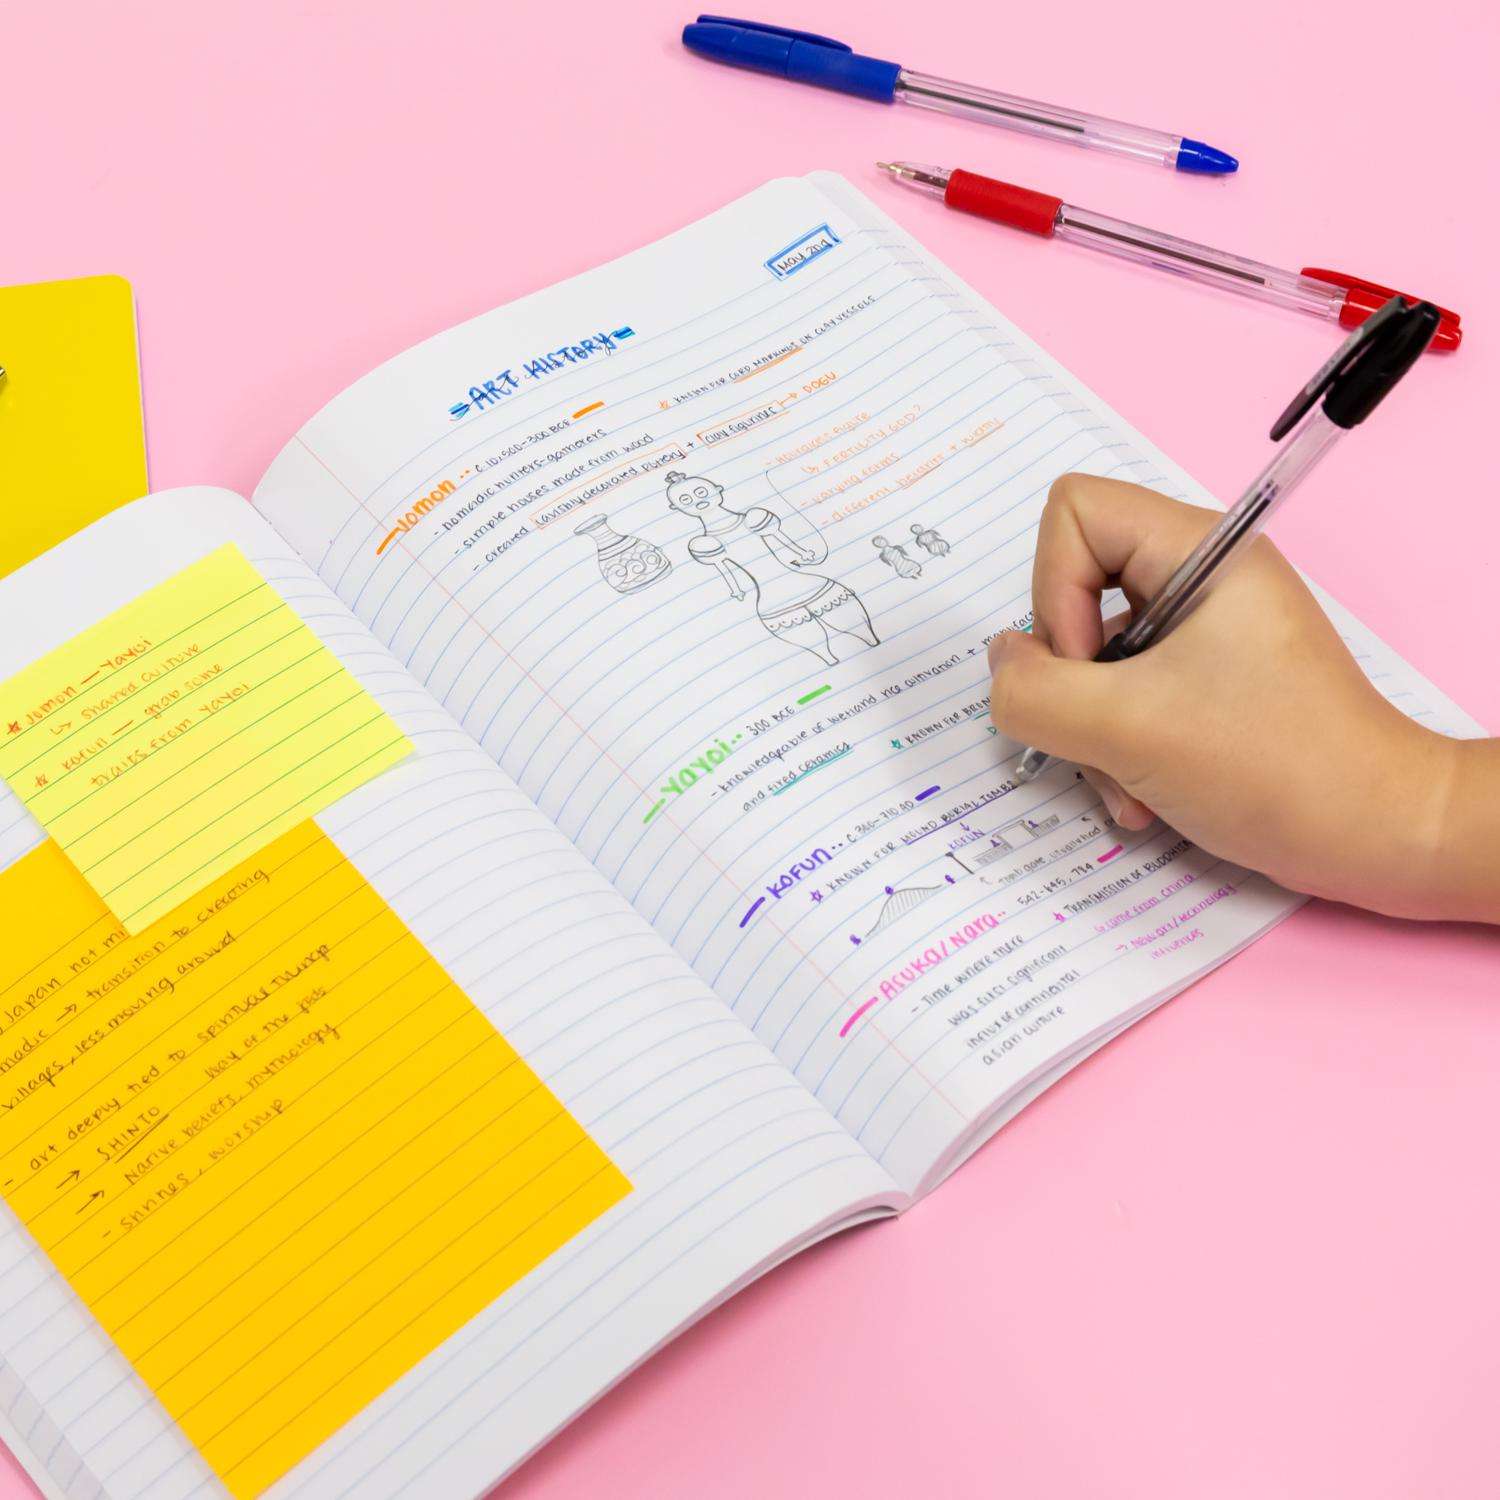 ★ Jomon — Yayoi
↳ shared culture
★ Kofun — grab some
traits from Yayoi
Japan not
→ transition to creating
villages, less moving around
- art deeply tied to spiritual things
→ SHINTO way of the
→ Native beliefs, mythology
- shrines, worship
May 2nd
=ART HISTORY=
Jomon ·· C. 10,500-300 BCE
★ KNOWN FOR CORD MARKINGS ON CLAY VESSELS
- nomadic hunters-gatherers
- simple houses made from wood
- created lavishly decorated pottery + clay figurines → DOGU
- figure
↳ FERTILITY GOD?
- varying forms
- different
Yayoi ·· 300 BCE
- knowledgeable of wetland rice cultivation +
and fired ceramics
★ KNOWN FOR
KOFUN ·· C. 300-710 AD
★ KNOWN FOR MOUND BURIAL TOMBS
↓
KOFUN
Asuka/Nara ·· 542-645, 784
- Time where there
was first significant
influx of continental
asian culture
★ TRANSMISSION OF
↳ came from China
→ new art/technology
influences